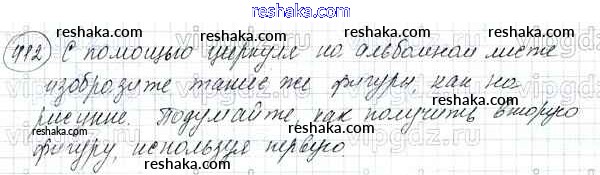 reshaka.com
412 С помощью циркуля на альбомном листе
изобразите такие же фигуры, как на
рисунке. Подумайте, как получить вторую
фигуру, используя первую.
reshaka.com reshaka.com reshaka.com
vipgdz.ru vipgdz.ru
reshaka.com reshaka.com reshaka.com
reshaka.com reshaka.com reshaka.com